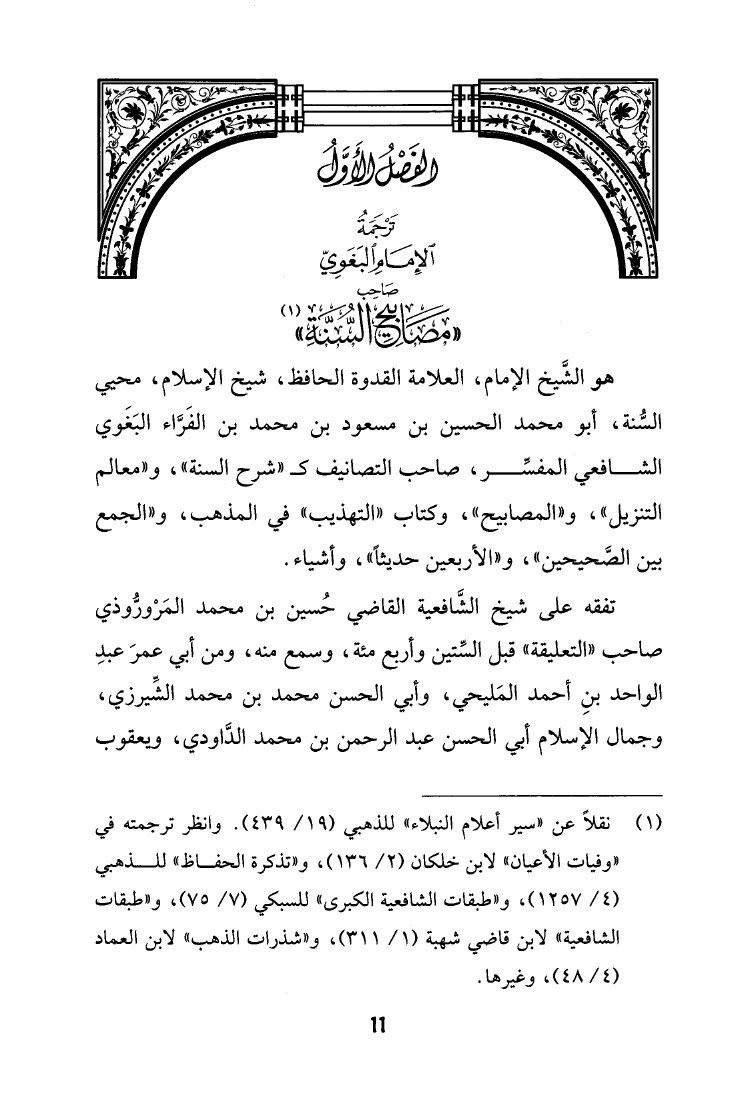 الفَصْلُ الأوَّلُ
تَرْجَمَةُ
الإمَامِ البَغَوِيِّ
صَاحِبِ
«مَصَابِيحِ السُّنَّةِ» (١)
هو الشَّيخ الإمام، العلامة القدوة الحافظ، شيخ الإسلام، محيي
السُّنة، أبو محمد الحسين بن مسعود بن محمد بن الفَرَّاء البَغَوي
الشافعي المفسِّر، صاحب التصانيف كـ «شرح السنة»، و«معالم
التنزيل»، و«المصابيح»، وكتاب «التهذيب» في المذهب، و«الجمع
بين الصَّحيحين»، و«الأربعين حديثاً»، وأشياء.
تفقه على شيخ الشَّافعية القاضي حُسين بن محمد المَرْورُّوذي
صاحب «التعليقة» قبل السِّتين وأربع مئة، وسمع منه، ومن أبي عمرَ عبدِ
الواحد بنِ أحمد المَليحي، وأبي الحسن محمد بن محمد الشِّيرزي،
وجمال الإسلام أبي الحسن عبد الرحمن بن محمد الدَّاودي، ويعقوب
(١) نقلاً عن «سير أعلام النبلاء» للذهبي (١٩/ ٤٣٩). وانظر ترجمته في
«وفيات الأعيان» لابن خلكان (٢/ ١٣٦)، و«تذكرة الحفاظ» للذهبي
(٤/ ١٢٥٧)، و«طبقات الشافعية الكبرى» للسبكي (٧/ ٧٥)، و«طبقات
الشافعية» لابن قاضي شهبة (١/ ٣١١)، و«شذرات الذهب» لابن العماد
(٤/ ٤٨)، وغيرها.
11